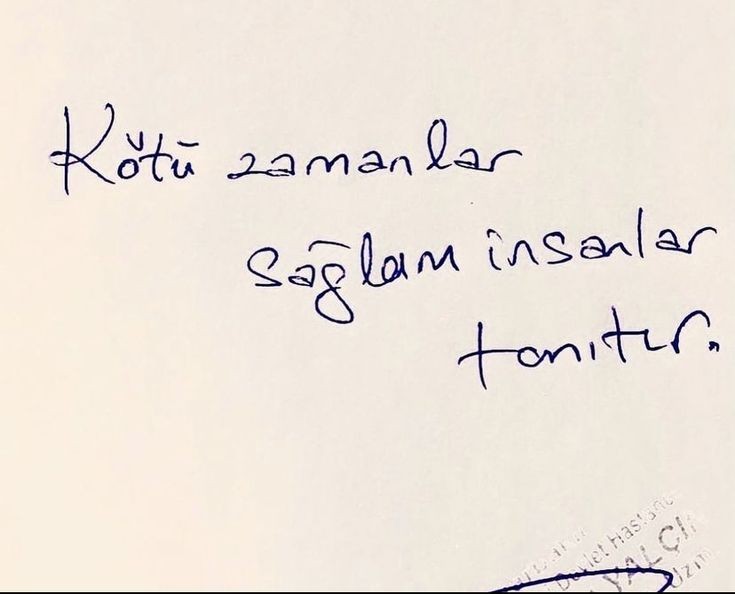 Kötü zamanlar
sağlam insanlar
tanıtır.
Devlet Hastane
YALÇI
Uzm